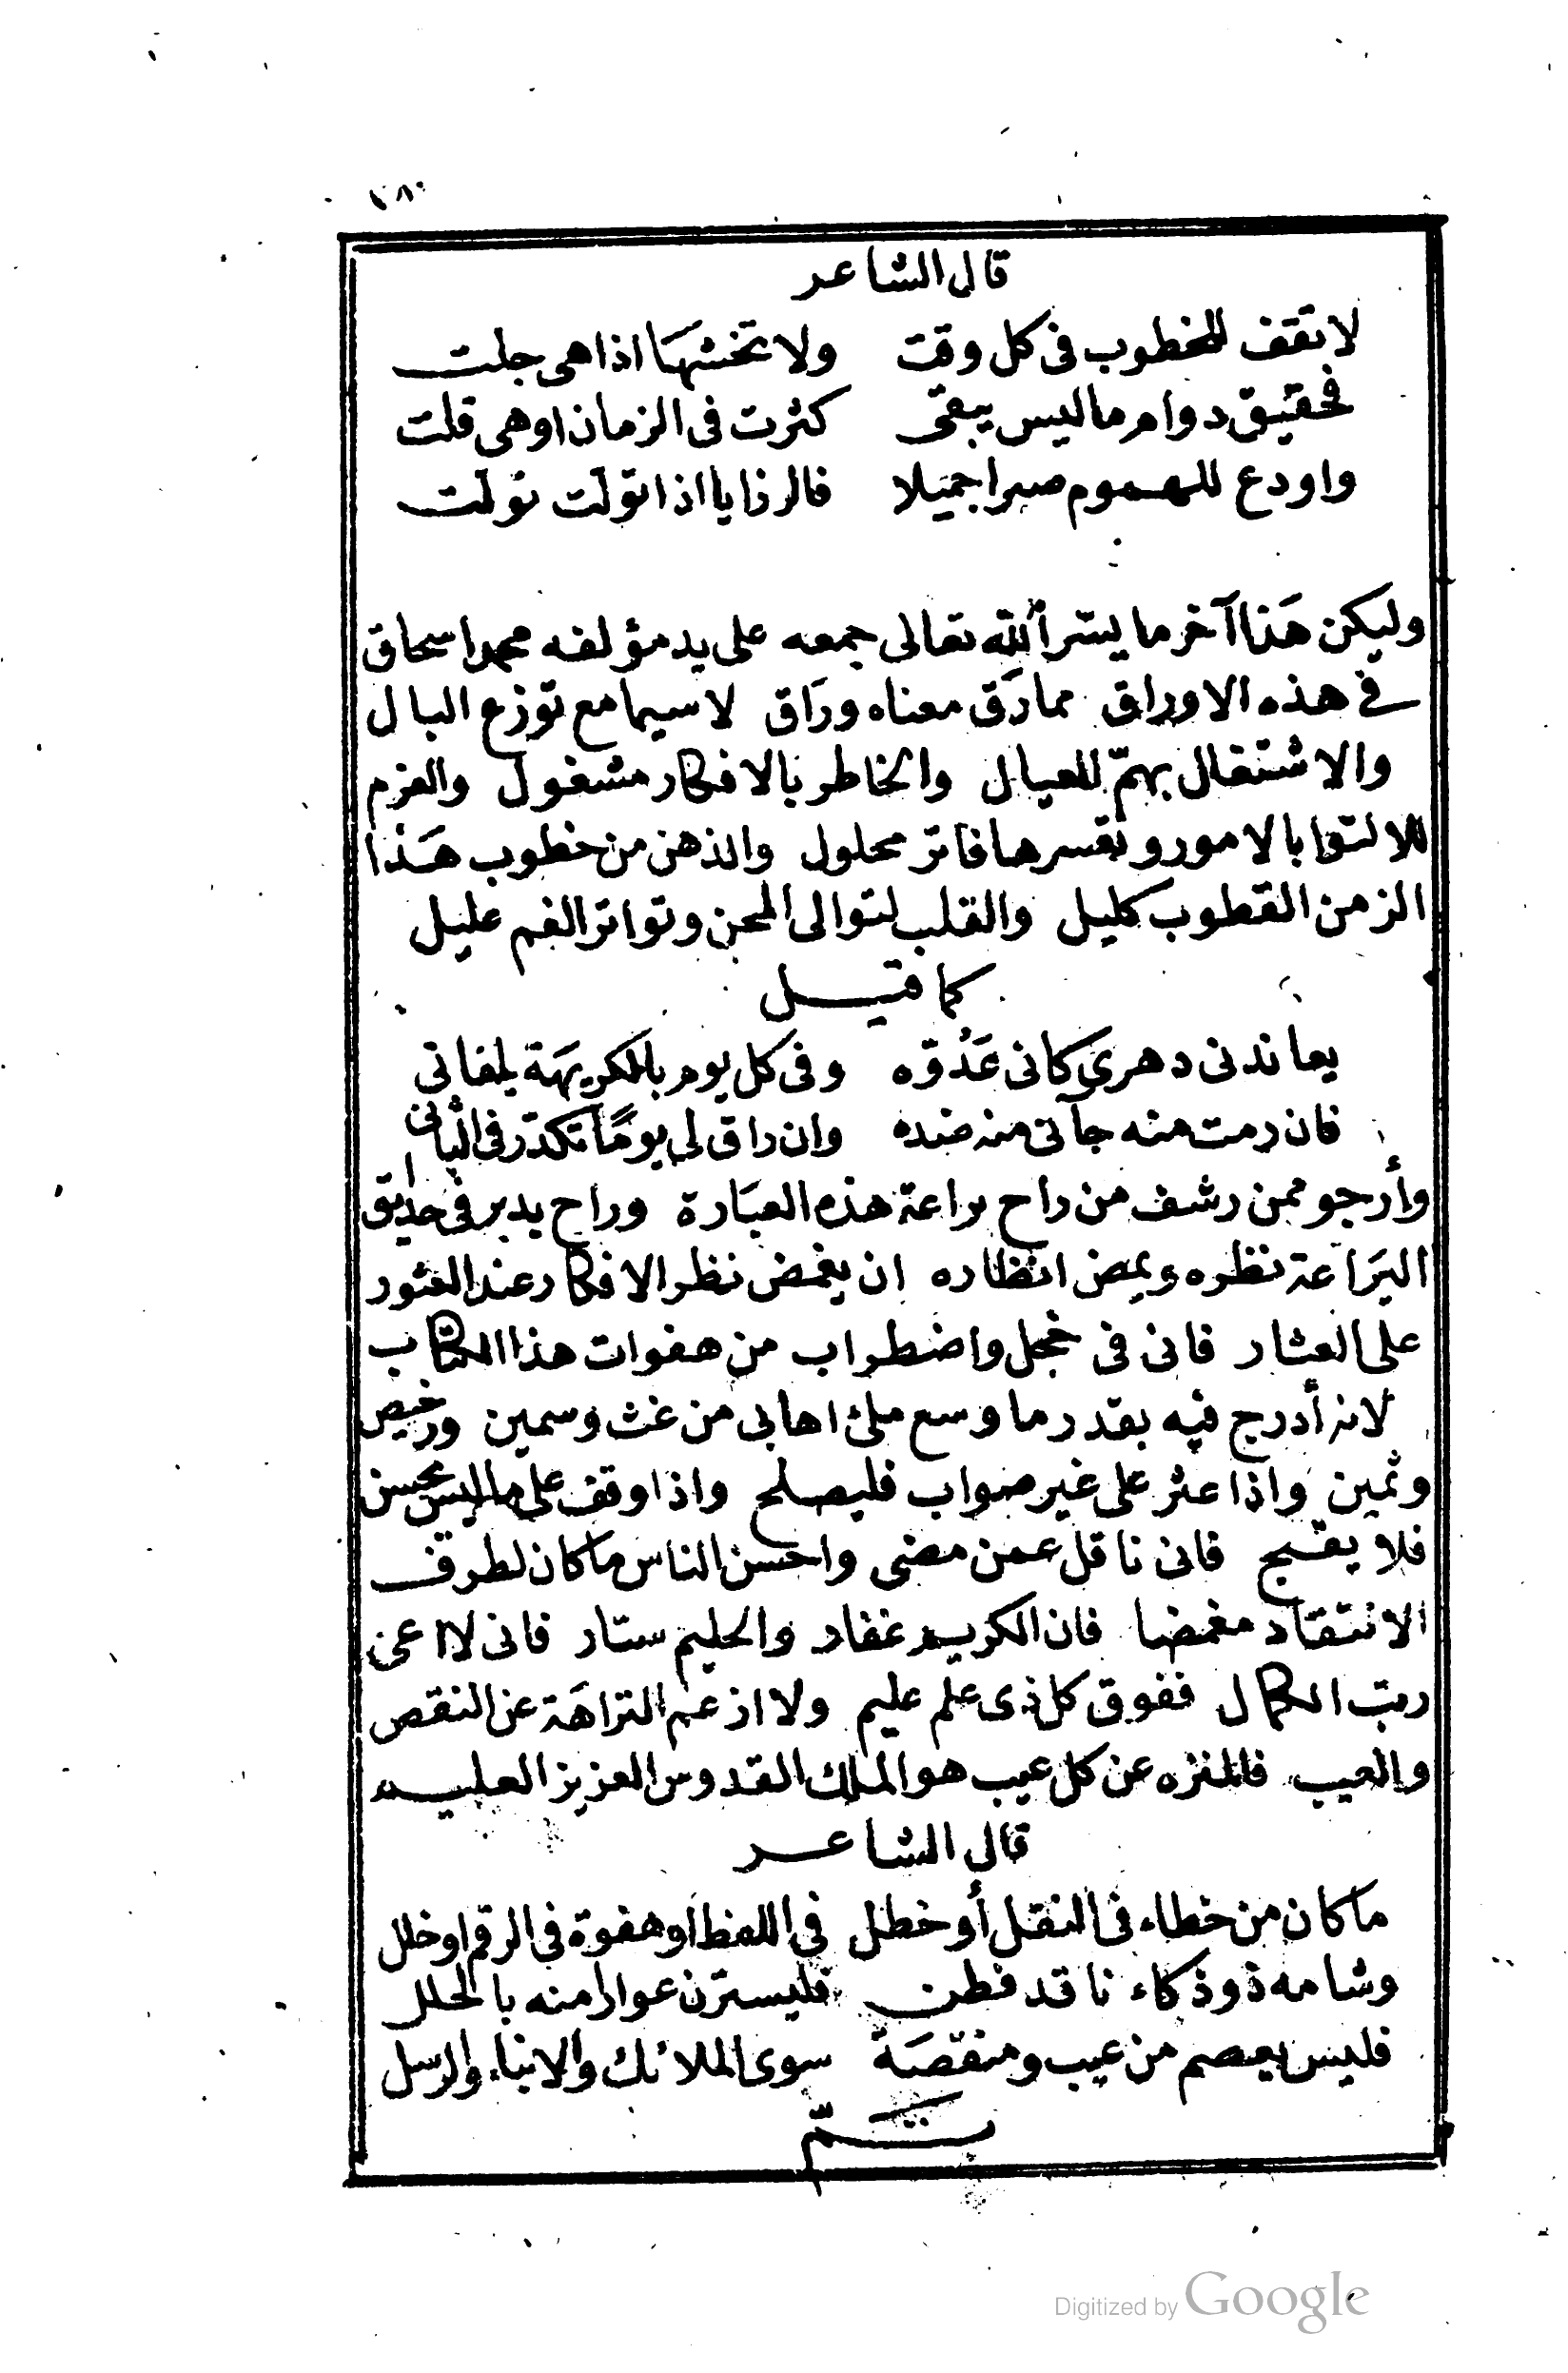 ١٨٠
قال الشاعر
لا تقف للخطوب فى كل وقت ولا تخشهَا اذا هى جلت
فحقيق دوام ما ليس يبقى كثرت فى الزمان او هى قلت
واودع للهموم صبرا جميلا فالرزايا اذا توَلت تولت
وليكن هَذا آخر ما يسّر ألله تعالى جمعه على يد مؤلفه محمد اسحاق
فى هذه الاوراق مما رَق معناه ورَاق لا سيما مع توزع البال
والاشتغال بهمّ العيال والخاطر بالافكار مشغول والعزم
لالتوا بالامور وتعسرها فاتر محلول والذهن من خطوب هَذا
الزمن القطوب كليل والقلب لتوالى المحن وتواتر الغم عليل
كما قيل
يعاندنى دهرى كانى عَدُوّه وفى كل يوم بالكريهَة يلقانى
فان رمت منه جآنى منه ضده وان راق لى يومًا تكدّر فى الثانى
وأرجو ممن رشف من راح براعة هذه العبَارة وراح يدير فى حدايق
اليَراعة نظره ويمض انظاره ان يغمض نظر الافكار عند العثور
على العثار فانى فى خجل واضطراب من هفوات هذا الكتاب
لانه أدرج فيه بقدر ما وسع ملئ اهابى من غث وسمين ورخيص
وثمين واذا عثر على غير صواب فليصلح واذا وقف على ما ليس بحسن
فلا يقبح فانى ناقل عمن مضى واحسن الناس ما كان لطرف
الانتقاد مغمضا فان الكريم غفار والحليم ستّار فانى لا ادعى
رتب الكمال ففوق كل ذى علم عليم ولا ازعم النزاهَة عن النقص
والعيب فالمنزه عن كل عيب هو الملك القدوس العزيز العليم
قال الشاعر
ما كان من خطاء فى النقل أو خطل فى اللفظ او هفوة فى الرقم او خلل
وشامه ذو ذكاء ناقد فطن فليسترن عوارا منه بالحلل
فليس يعصم من عيب ومنقصَة سوى الملائك والانبياء والرسل
تمّ
Digitized by Google